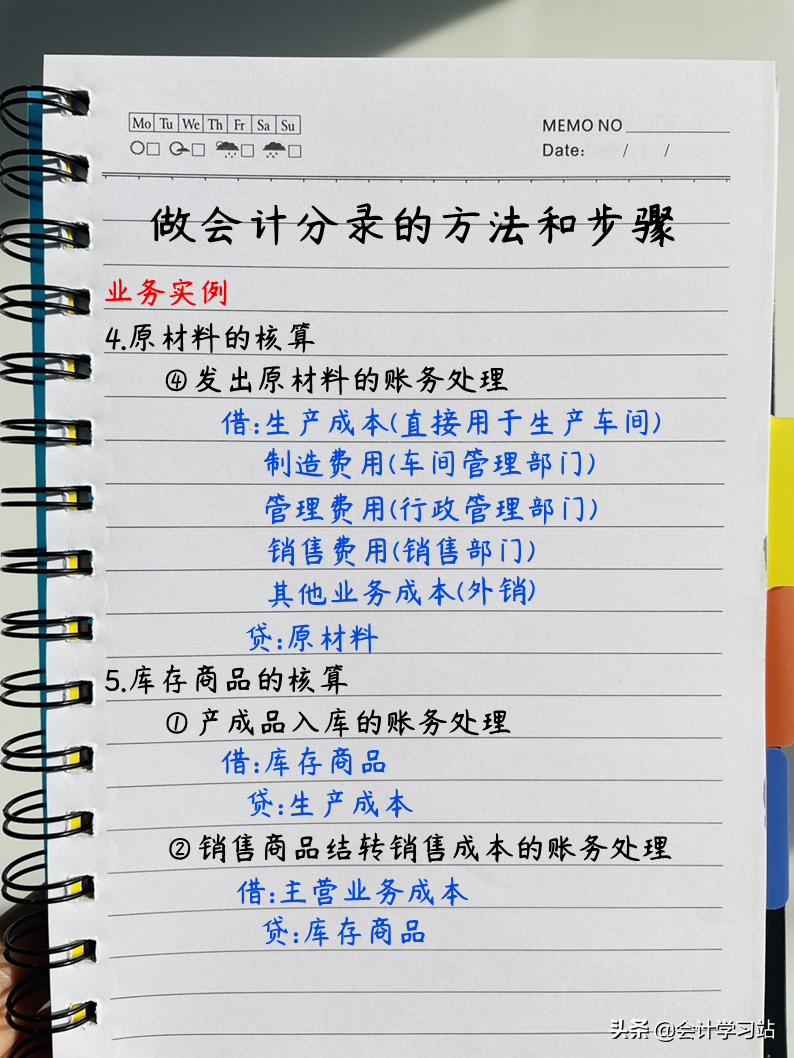 Mo Tu We Th Fr Sa Su
MEMO NO
Date: / /
做会计分录的方法和步骤
业务实例
4.原材料的核算
④发出原材料的账务处理
借:生产成本(直接用于生产车间)
制造费用(车间管理部门)
管理费用(行政管理部门)
销售费用(销售部门)
其他业务成本(外销)
贷:原材料
5.库存商品的核算
①产成品入库的账务处理
借:库存商品
贷:生产成本
②销售商品结转销售成本的账务处理
借:主营业务成本
贷:库存商品
头条 @会计学习站